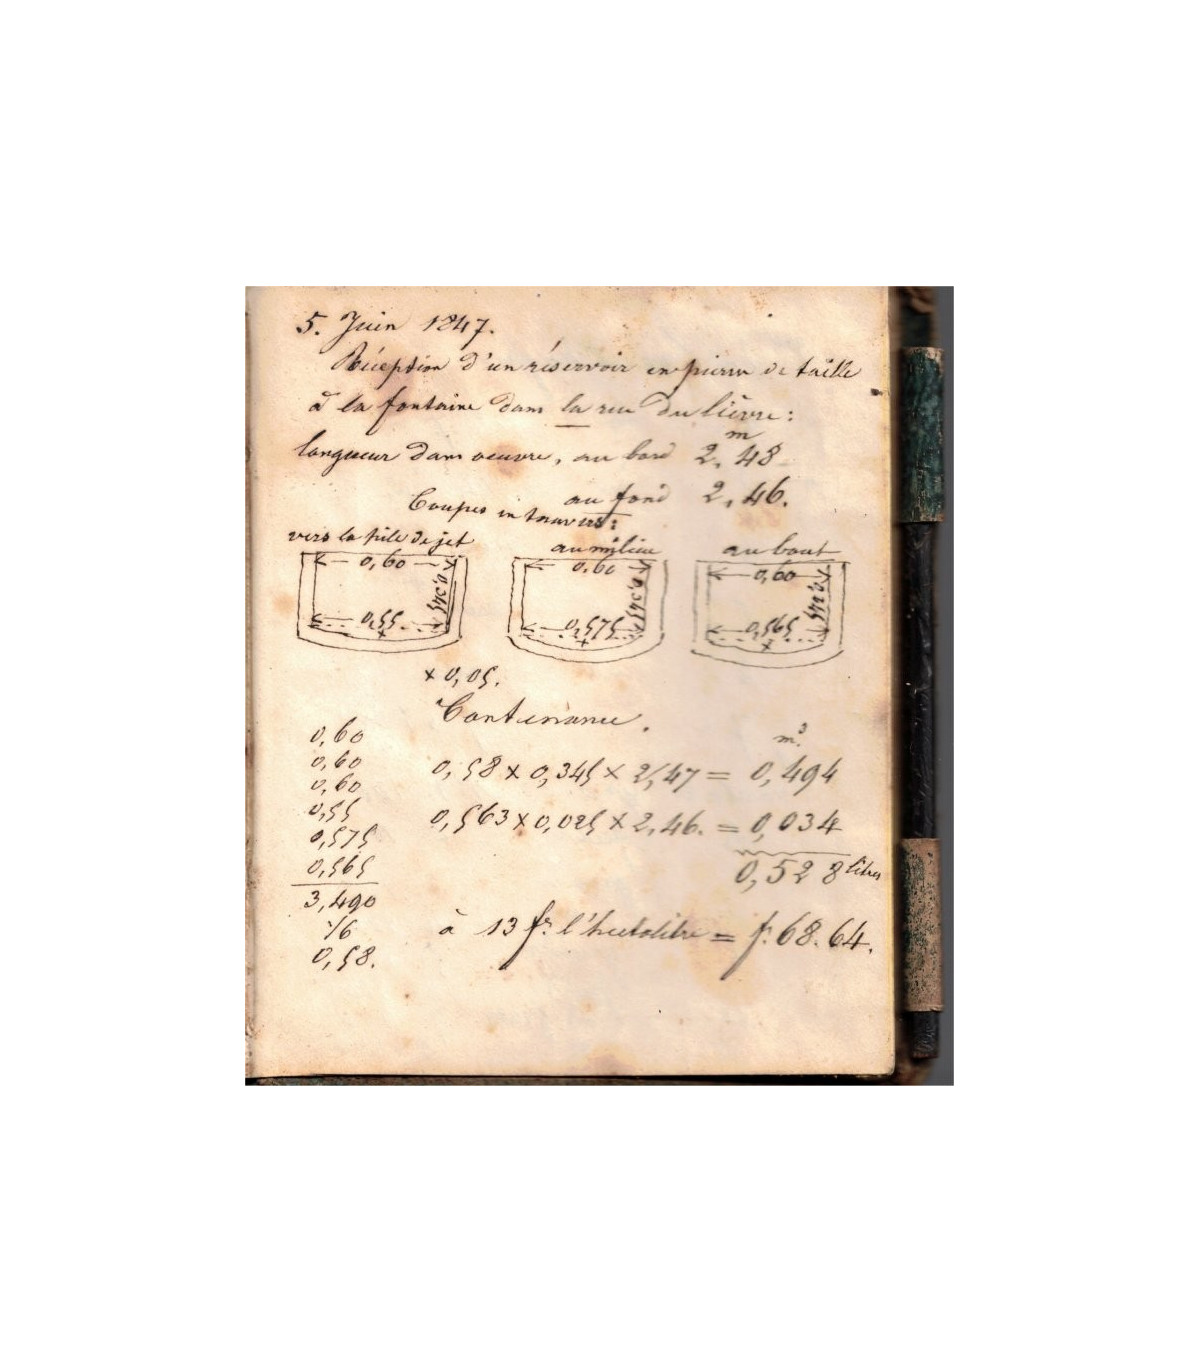 5. Juin 1847.
Réception d'un réservoir en pierre de taille
à la fontaine dans la rue du lièvre:
m
longueur dans oeuvre, au bord 2,48
au fond 2,46.
Coupes en travers:
vers la pile de jet au milieu au bout
0,60 0,60 0,60
0,345 0,345 0,345
0,55 0,575 0,565
x x x
x 0,05.
Contenance.
0,60
m³
0,60 0,58 x 0,345 x 2,47 = 0,494
0,60
0,55 0,563 x 0,025 x 2,46. = 0,034
0,575
0,565 0,528 litres
3,490
1/6 à 13 fr. l'hectolitre = f. 68.64.
0,58.